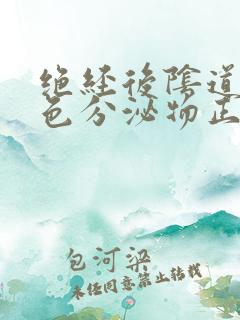 绝经后陰道
色分泌物正
包河梁
未经同意禁止转载